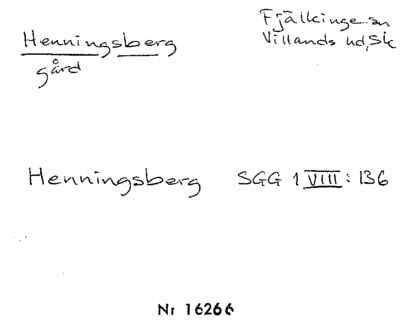 Henningsberg
gård
Fjälkinge sn
Villands hd, Sk
Henningsberg SGG 1 VIII: 136
Nr 16266